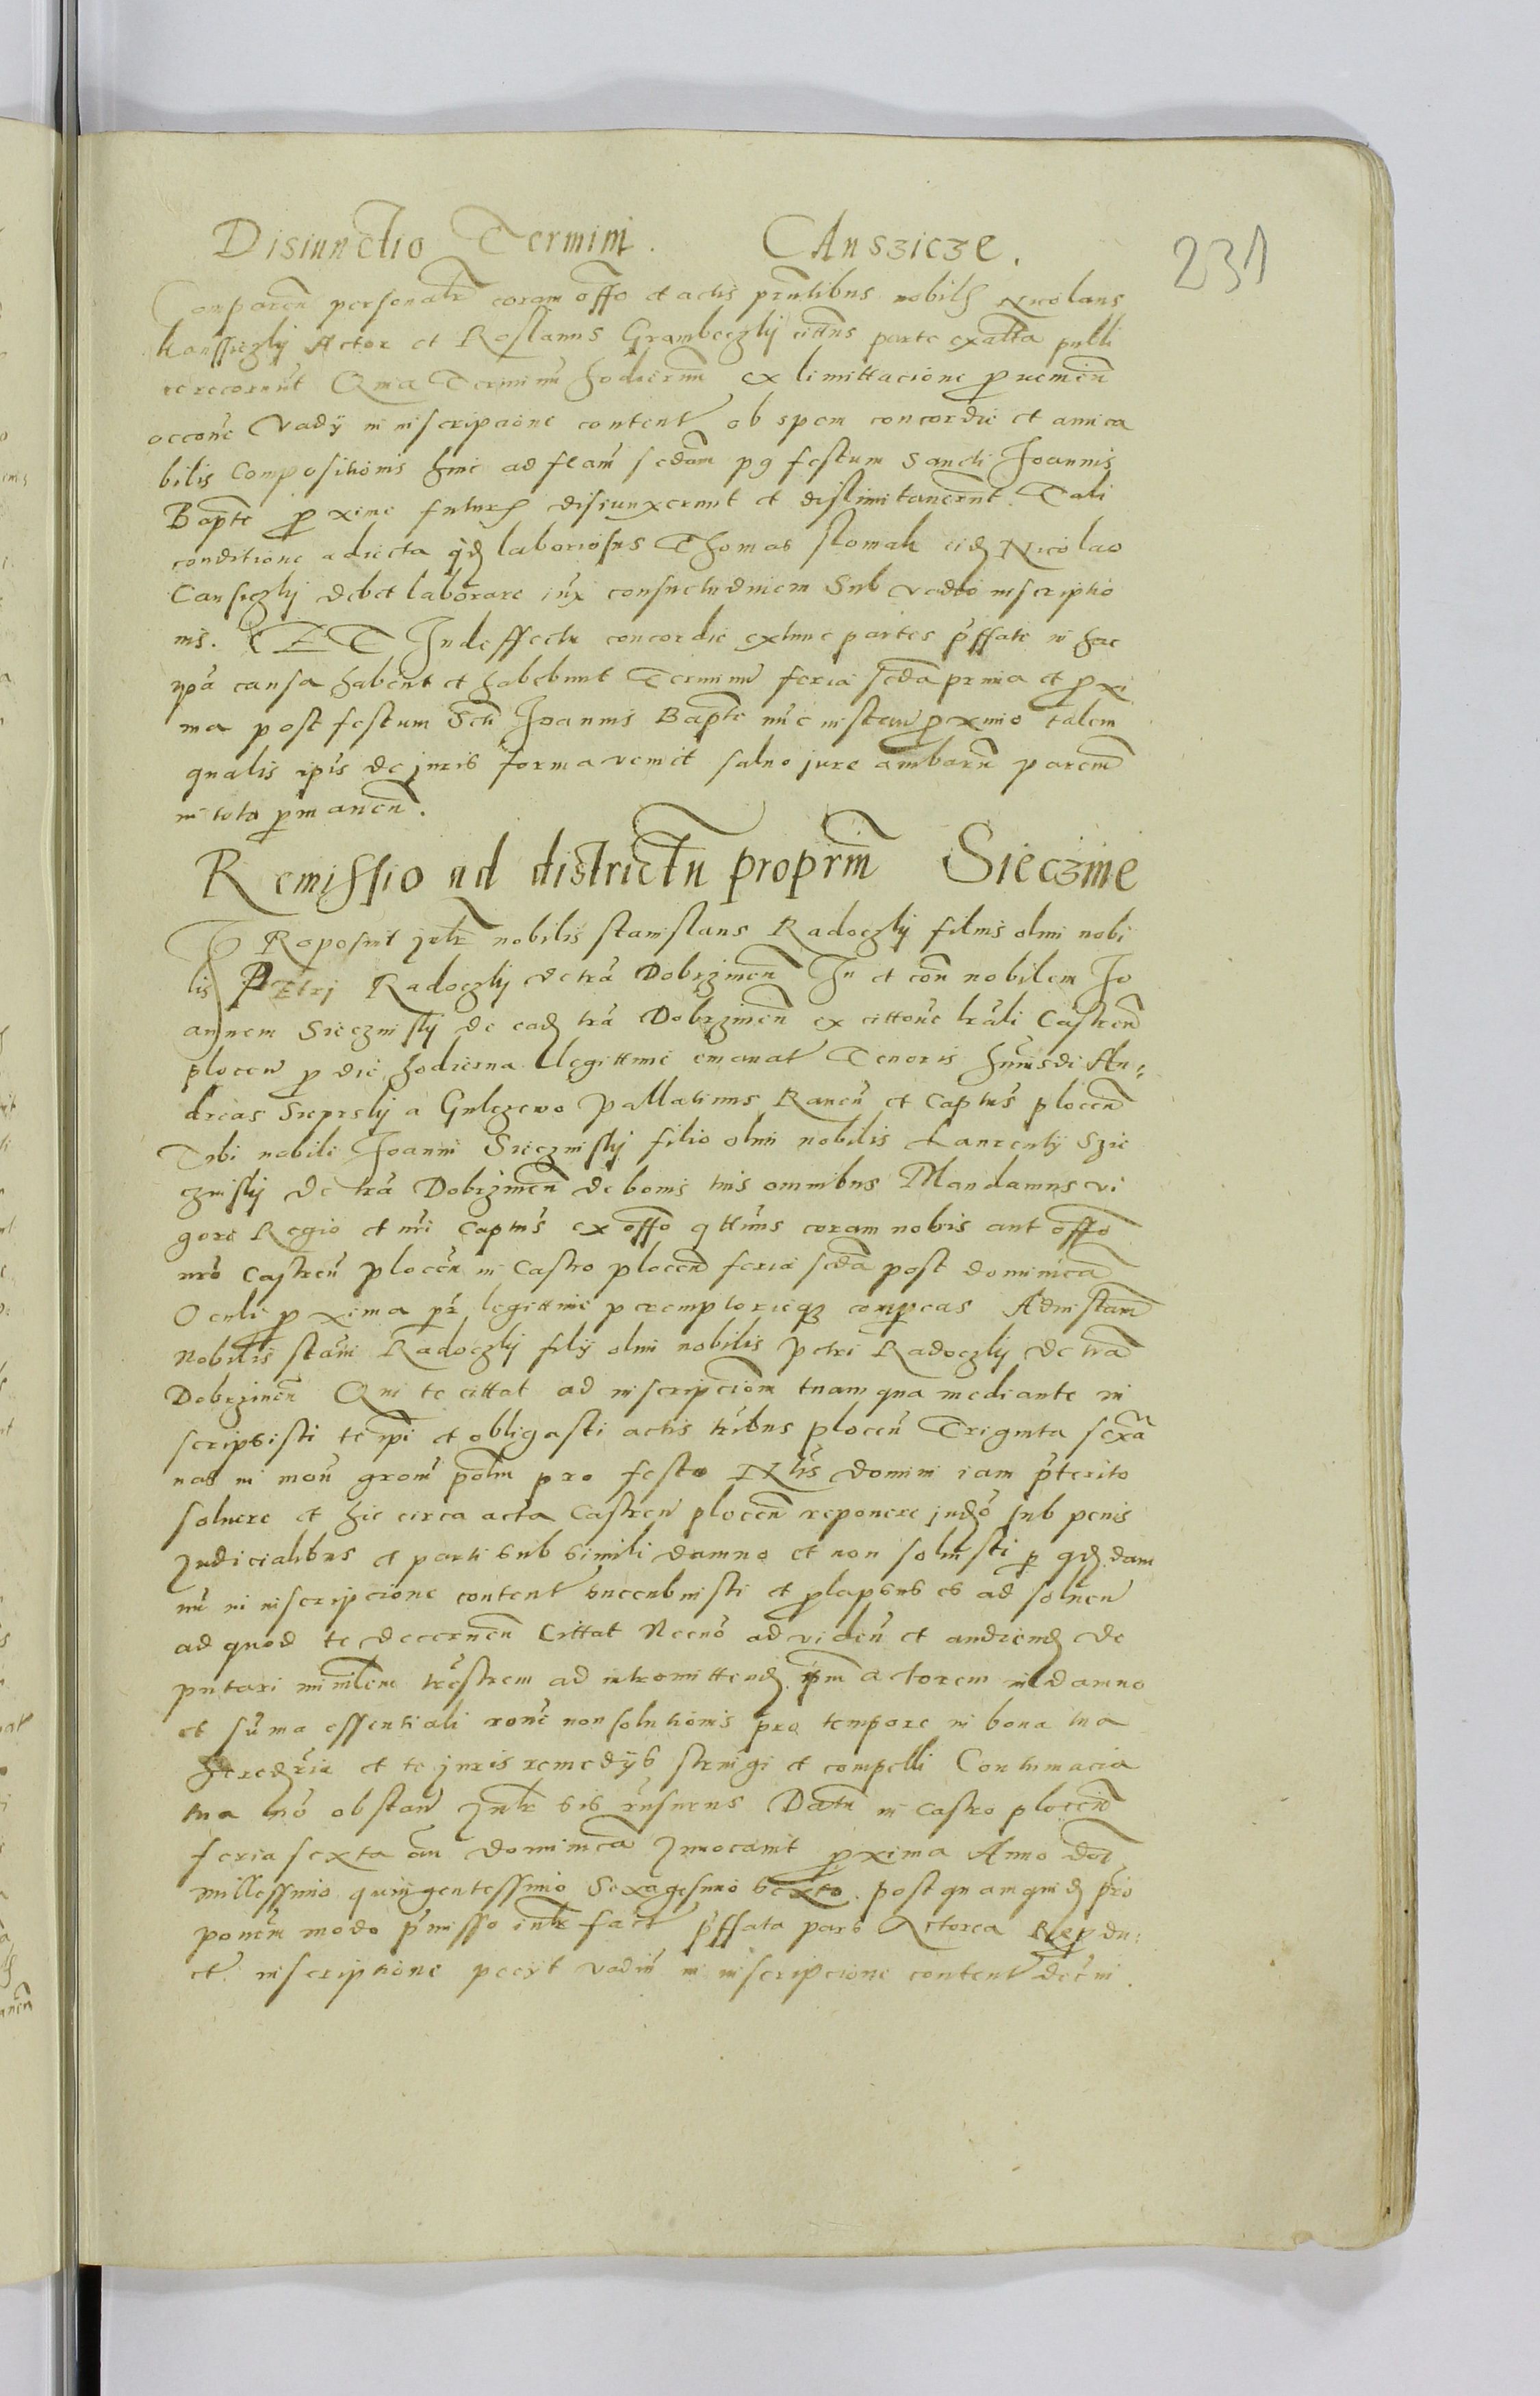 231
Disiunctio Termini. CAnszicze.
Comparen personalr coram offo et actis pntibus nobils Nicolaus
kanssiczkÿ Actor et Roslanus Grambeczkÿ cittus parte ex alta pulli
re recornut Quia Terminu hodiernu ex limittacione puenien
occone Vadÿ in inscripcione content ob spem concordie et amica
bilis Compositionis hinc ad feam scdam pg festum Sancti Joannis
Bapte pxime futur disiunxerunt et dislimitauernt. Tali
conditione adiecta qd laboriosus Thomas slomak eid Nicolao
Cansiczkÿ debet laborare iux consuetudinem Sub vadio inscriptio
nis. ET In deffectu concordie extunc partes pffate in hac
ipa causa habent et habebunt Terminu feria scda prima et pxi
ma post festum Scti Joannis Bapte nuc insten pximo talem
qualis ipis de juris forma venit saluo jure ambaru parcium
in toto pmanen.
Remissio ad districtu proprim Sieczine
PRoposuit jutr nobilis stanislaus Radoczkÿ filius olim nobi
lis PEtrj Radoczkÿ de tra Dobrzinen In et con nobilem Jo
annem Sieczinskÿ de ead tra Dobrzinen ex cittone trali Castren
plocen p die hodierna legittime emanat Tenoris huiusdi An:
dreas Sieprskÿ a Gulczewo Pallatinus Rauen et Captus plocen
Tibi nobili Joanni Sieczinskÿ filio olim nobilis Laurentÿ Szie
czinskÿ de tra Dobrzinen de bonis tuis omnibus Mandamus vi
gore Regio et nri Captus ex offo qttinus coram nobis aut offo
nro Castren plocen in Castro plocen feria scda post dominica
Oculi pxima pr legittime peremptorieqz compeas Ad instam
Nobilis stani Radoczkÿ filÿ olim nobilis Petri Radoczkÿ de tra
Dobrzinen Qui te cittat ad inscripciom tuam qua mediante in
scripsisti te ipi et obligasti actis tribus plocen Triginta sexa
nas in mon grom polm pro festo Ntis domini iam pterito
soluere et hic circa acta Castren plocen reponere judo sub penis
Judicialibus et parti sub simili damno et non soluisti p qd dam
nu in inscripcione content succubuisti et plapsus es ad soluen
ad quod te decernen Cittat Necno ad viden et audiend de
putari minilem trestrem ad intromittend ipm actorem in damno
et suma essentiali rone non solutionis pro tempore in bona tua
hereditria et te juris remedÿs stringi et compelli Contumacia
tua no obstan Jutr sis rnsurus Datu in Castro plocen
feria sexta an dominica Jnuocauit pxima Anno dni
millessimo quingentessimo Sexagesimo sexto. post quamquid pro
ponem modo pmisso jutr fact pffata pars Actorea Repdu:
ct inscriptione peciit vadiu in inscripcione content decni.